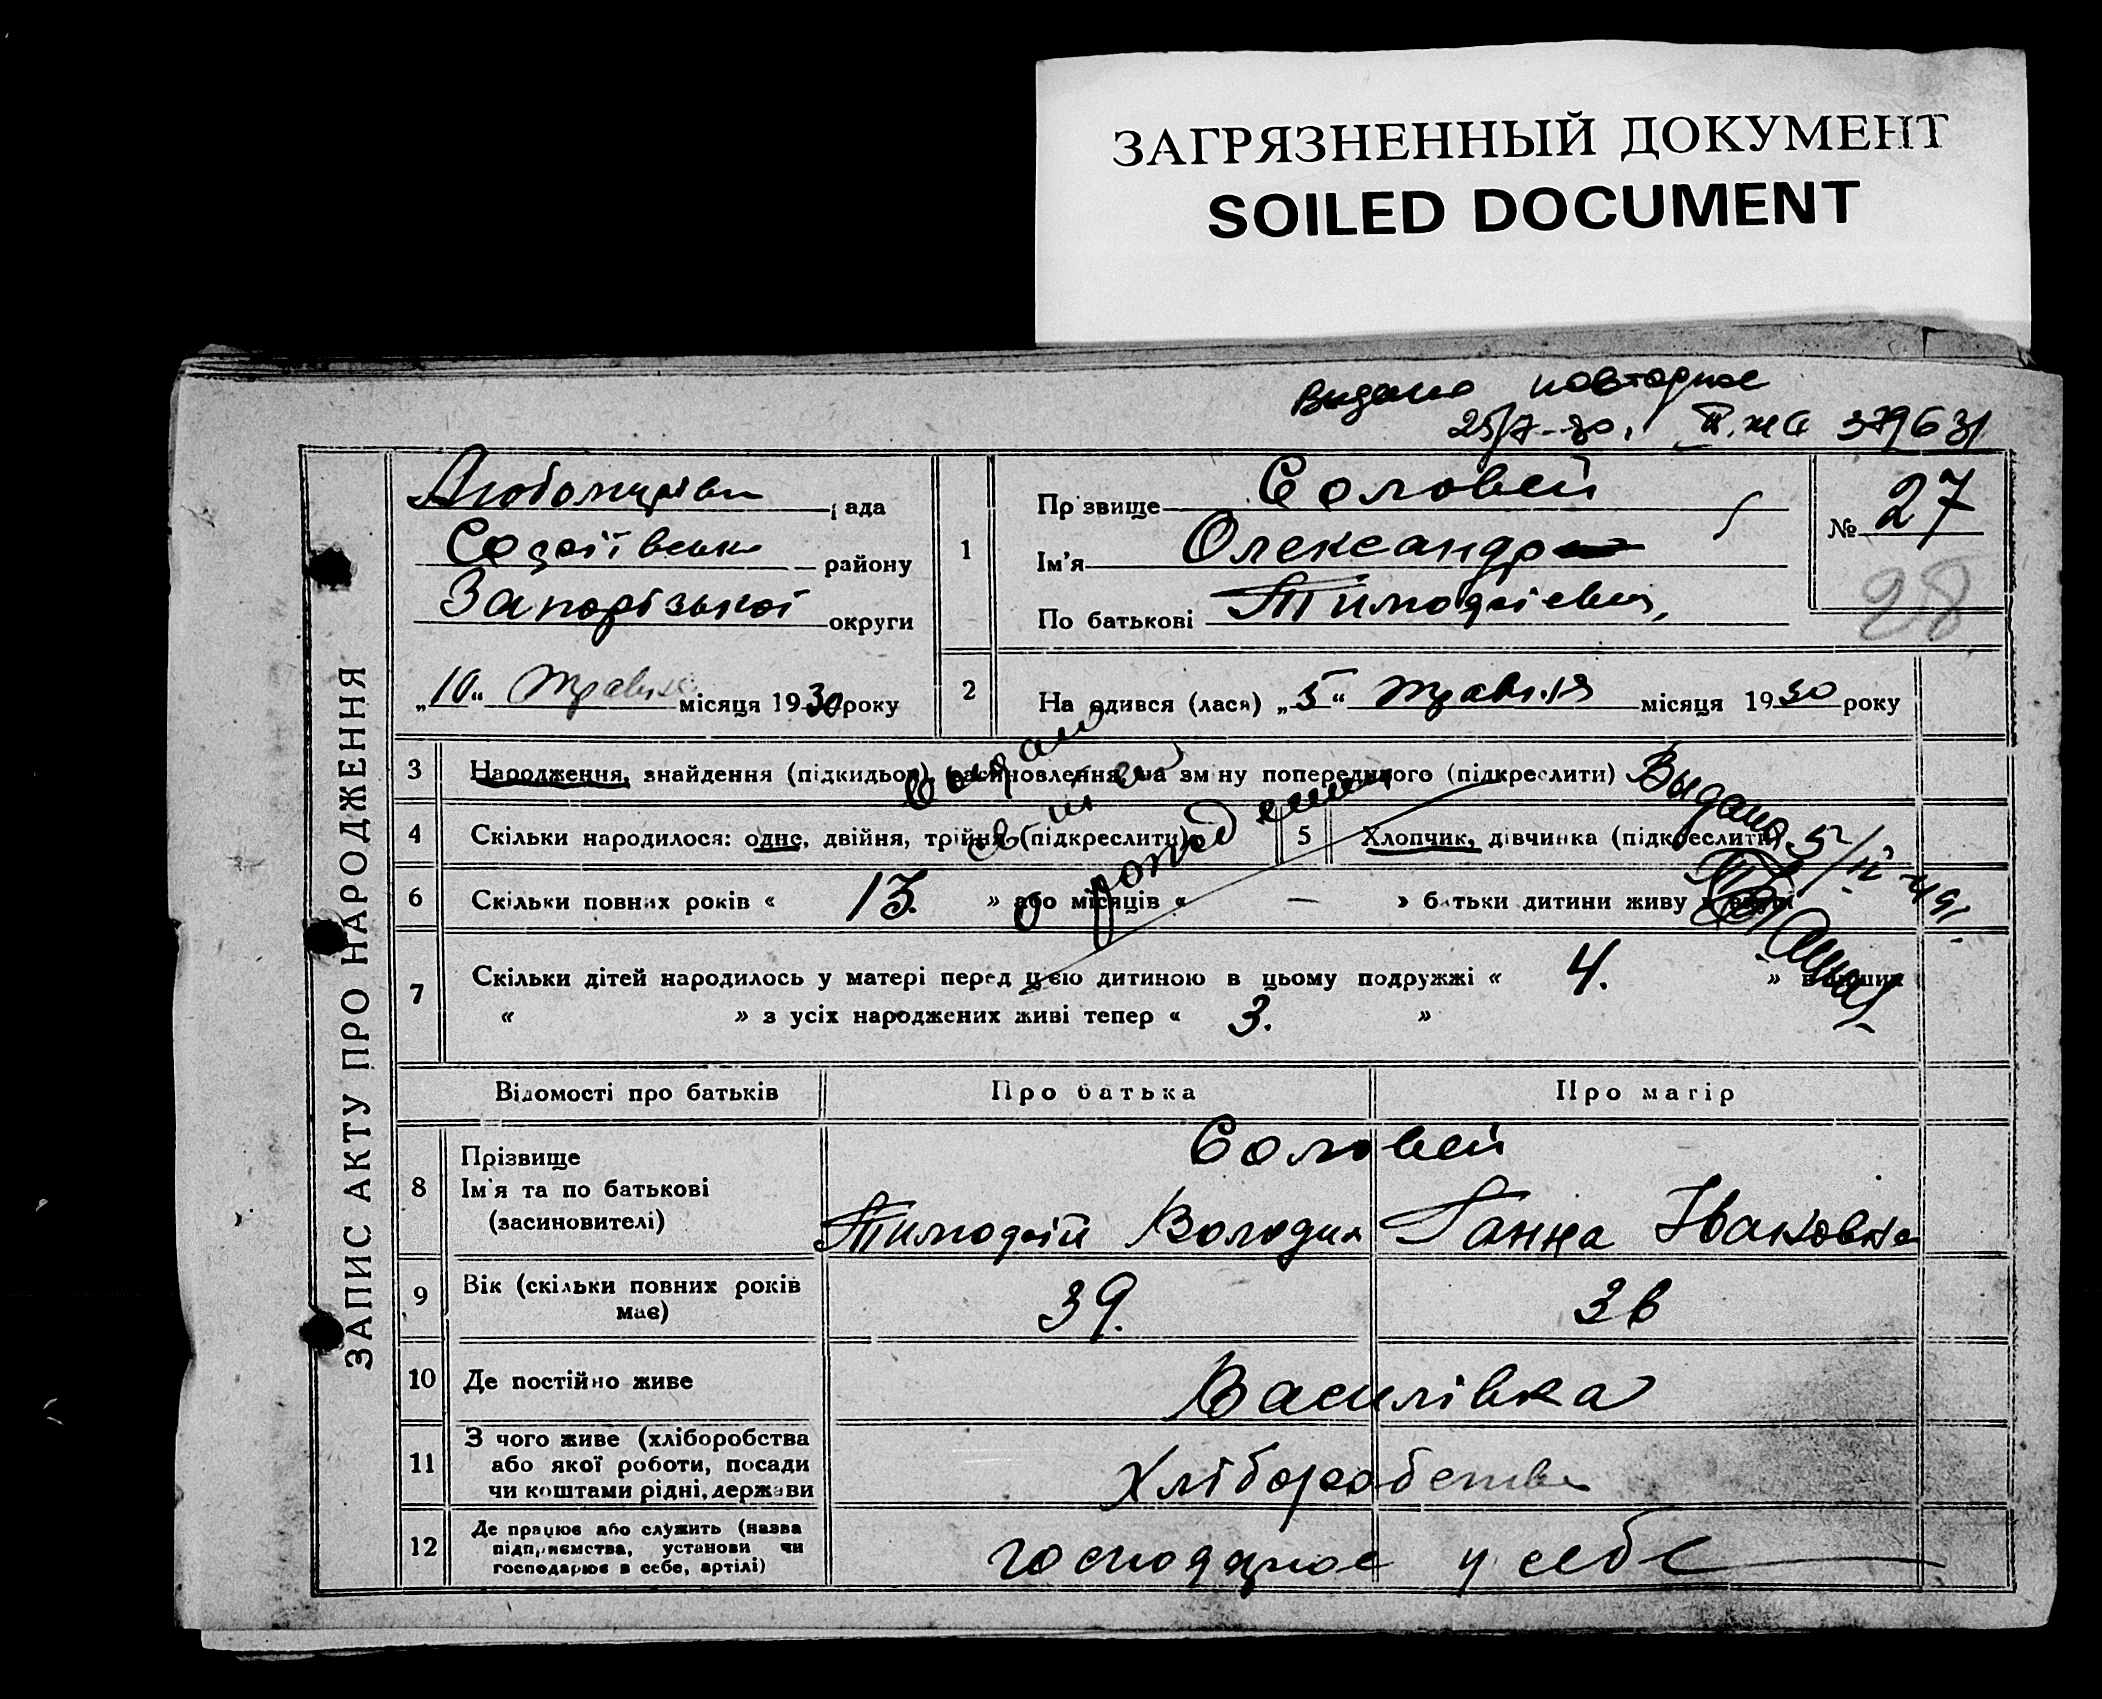 ЗАГРЯЗНЕННЫЙ ДОКУМЕНТ
SOILED DOCUMENT
Видано повторное
25/7-80. 379631
ЗАПИС АКТУ ПРО НАРОДЖЕННЯ
Любомирівк ада
Софіївськ району
Запорізької округи
„10“ травня місяця 1930 року
1
Пр звище Соловей
Ім'я Олександр
По батькові Тимофієвич,
№ 27
28
2 На одився (лася) „5“ травня місяця 1930 року
3 Народження, знайдення (підкидьок), засиновлення, на зм ну попереднього (підкреслити)
Выдано 5/IV 49.
4 Скільки народилося: одне, двійня, трійня (підкреслити)
5 Хлопчик, дівчинка (підкреслити)
выдано
о рожд
6 Скільки повних років « 13. » або місяців « — » батьки дитини живу
7 Скільки дітей народилось у матері перед цією дитиною в цьому подружжі « 4. »
« » з усіх народжених живі тепер « 3. »
Відомості про батьків Про батька Про матір
8 Прізвище
Ім'я та по батькові
(засиновителі)
Соловей
Тимофій Володим Ганна Івановна
9 Вік (скільки повних років
має)
39. 36
10 Де постійно живе Василівка
11 З чого живе (хліборобства
або якої роботи, посади
чи коштами рідні, держави
Хліборобства
12 Де працює або служить (назва
підприємства, установи чи
господарює в себе, артілі)
господарює у себе